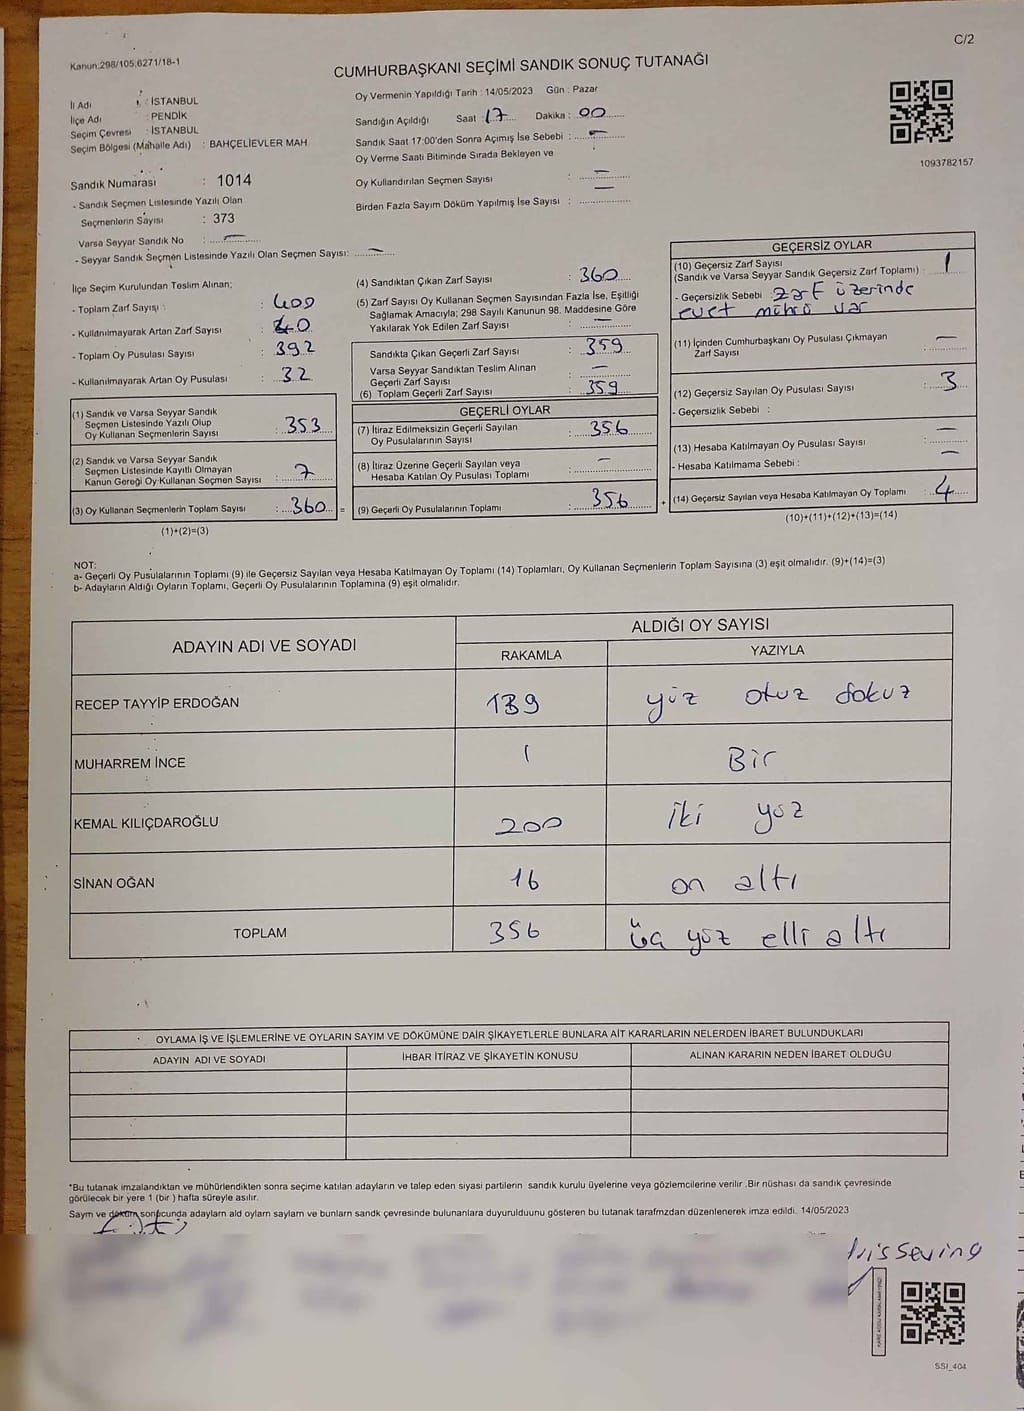 C/2
Kanun;298/105;6271/18-1
CUMHURBAŞKANI SEÇİMİ SANDIK SONUÇ TUTANAĞI
İl Adı : İSTANBUL
İlçe Adı : PENDİK
Seçim Çevresi : İSTANBUL
Seçim Bölgesi (Mahalle Adı) : BAHÇELİEVLER MAH.
Sandık Numarası : 1014
- Sandık Seçmen Listesinde Yazılı Olan
Seçmenlerin Sayısı : 373
Varsa Seyyar Sandık No : —
- Seyyar Sandık Seçmen Listesinde Yazılı Olan Seçmen Sayısı: —
Oy Vermenin Yapıldığı Tarih : 14/05/2023 Gün : Pazar
Sandığın Açıldığı Saat : 17 Dakika : 00
Sandık Saat 17:00'den Sonra Açımış İse Sebebi : —
Oy Verme Saati Bitiminde Sırada Bekleyen ve
Oy Kullandırılan Seçmen Sayısı : —
Birden Fazla Sayım Döküm Yapılmış İse Sayısı : —
1093782157
İlçe Seçim Kurulundan Teslim Alınan;
- Toplam Zarf Sayısı : 400
- Kullanılmayarak Artan Zarf Sayısı : 40
- Toplam Oy Pusulası Sayısı : 392
- Kullanılmayarak Artan Oy Pusulası : 32
(1) Sandık ve Varsa Seyyar Sandık
Seçmen Listesinde Yazılı Olup
Oy Kullanan Seçmenlerin Sayısı : 353
(2) Sandık ve Varsa Seyyar Sandık
Seçmen Listesinde Kayıtlı Olmayan
Kanun Gereği Oy Kullanan Seçmen Sayısı : 7
(3) Oy Kullanan Seçmenlerin Toplam Sayısı : 360 =
(1)+(2)=(3)
(4) Sandıktan Çıkan Zarf Sayısı : 360
(5) Zarf Sayısı Oy Kullanan Seçmen Sayısından Fazla İse, Eşitliği
Sağlamak Amacıyla; 298 Sayılı Kanunun 98. Maddesine Göre
Yakılarak Yok Edilen Zarf Sayısı : —
Sandıkta Çıkan Geçerli Zarf Sayısı : 359
Varsa Seyyar Sandıktan Teslim Alınan
Geçerli Zarf Sayısı : —
(6) Toplam Geçerli Zarf Sayısı : 359
GEÇERLİ OYLAR
(7) İtiraz Edilmeksizin Geçerli Sayılan
Oy Pusulalarının Sayısı : 356
(8) İtiraz Üzerine Geçerli Sayılan veya
Hesaba Katılan Oy Pusulası Toplamı : —
(9) Geçerli Oy Pusulalarının Toplamı : 356 +
GEÇERSİZ OYLAR
(10) Geçersiz Zarf Sayısı
(Sandık ve Varsa Seyyar Sandık Geçersiz Zarf Toplamı) : 1
- Geçersizlik Sebebi : zarf üzerinde
evet mührü var
(11) İçinden Cumhurbaşkanı Oy Pusulası Çıkmayan
Zarf Sayısı : —
(12) Geçersiz Sayılan Oy Pusulası Sayısı : 3
- Geçersizlik Sebebi :
(13) Hesaba Katılmayan Oy Pusulası Sayısı : —
- Hesaba Katılmama Sebebi : —
(14) Geçersiz Sayılan veya Hesaba Katılmayan Oy Toplamı : 4
(10)+(11)+(12)+(13)=(14)
NOT:
a- Geçerli Oy Pusulalarının Toplamı (9) ile Geçersiz Sayılan veya Hesaba Katılmayan Oy Toplamı (14) Toplamları, Oy Kullanan Seçmenlerin Toplam Sayısına (3) eşit olmalıdır. (9)+(14)=(3)
b- Adayların Aldığı Oyların Toplamı, Geçerli Oy Pusulalarının Toplamına (9) eşit olmalıdır.
ADAYIN ADI VE SOYADI ALDIĞI OY SAYISI
RAKAMLA YAZIYLA
RECEP TAYYİP ERDOĞAN 139 yüz otuz dokuz
MUHARREM İNCE 1 Bir
KEMAL KILIÇDAROĞLU 200 iki yüz
SİNAN OĞAN 16 on altı
TOPLAM 356 üç yüz elli altı
OYLAMA İŞ VE İŞLEMLERİNE VE OYLARIN SAYIM VE DÖKÜMÜNE DAİR ŞİKAYETLERLE BUNLARA AİT KARARLARIN NELERDEN İBARET BULUNDUKLARI
ADAYIN ADI VE SOYADI İHBAR İTİRAZ VE ŞİKAYETİN KONUSU ALINAN KARARIN NEDEN İBARET OLDUĞU
*Bu tutanak imzalandıktan ve mühürlendikten sonra seçime katılan adayların ve talep eden siyasi partilerin sandık kurulu üyelerine veya gözlemcilerine verilir .Bir nüshası da sandık çevresinde
görülecek bir yere 1 (bir ) hafta süreyle asılır.
Sayım ve döküm sonucunda adayların ald oyların sayları ve bunların sandk çevresinde bulunanlara duyurulduunu gösteren bu tutanak tarafmzdan düzenlenerek imza edildi. 14/05/2023
SSI_404